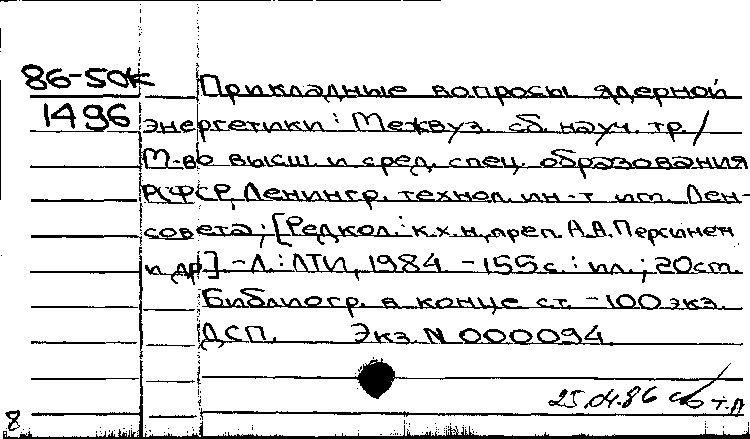 86-50к Прикладные вопросы ядерной
1496 энергетики: Межвуз. сб. науч. тр. /
М-во высш. и сред. спец. образования
РСФСР, Ленингр. технол. ин-т им. Лен-
совета; [Редкол.: к.х.н., преп. А.А. Персинен
и др.]. - Л.: ЛТИ, 1984. - 155 с.: ил.; 20 см.
Библиогр. в конце ст. - 100 экз.
ДСП. Экз. N 000094.
25.04.86
8